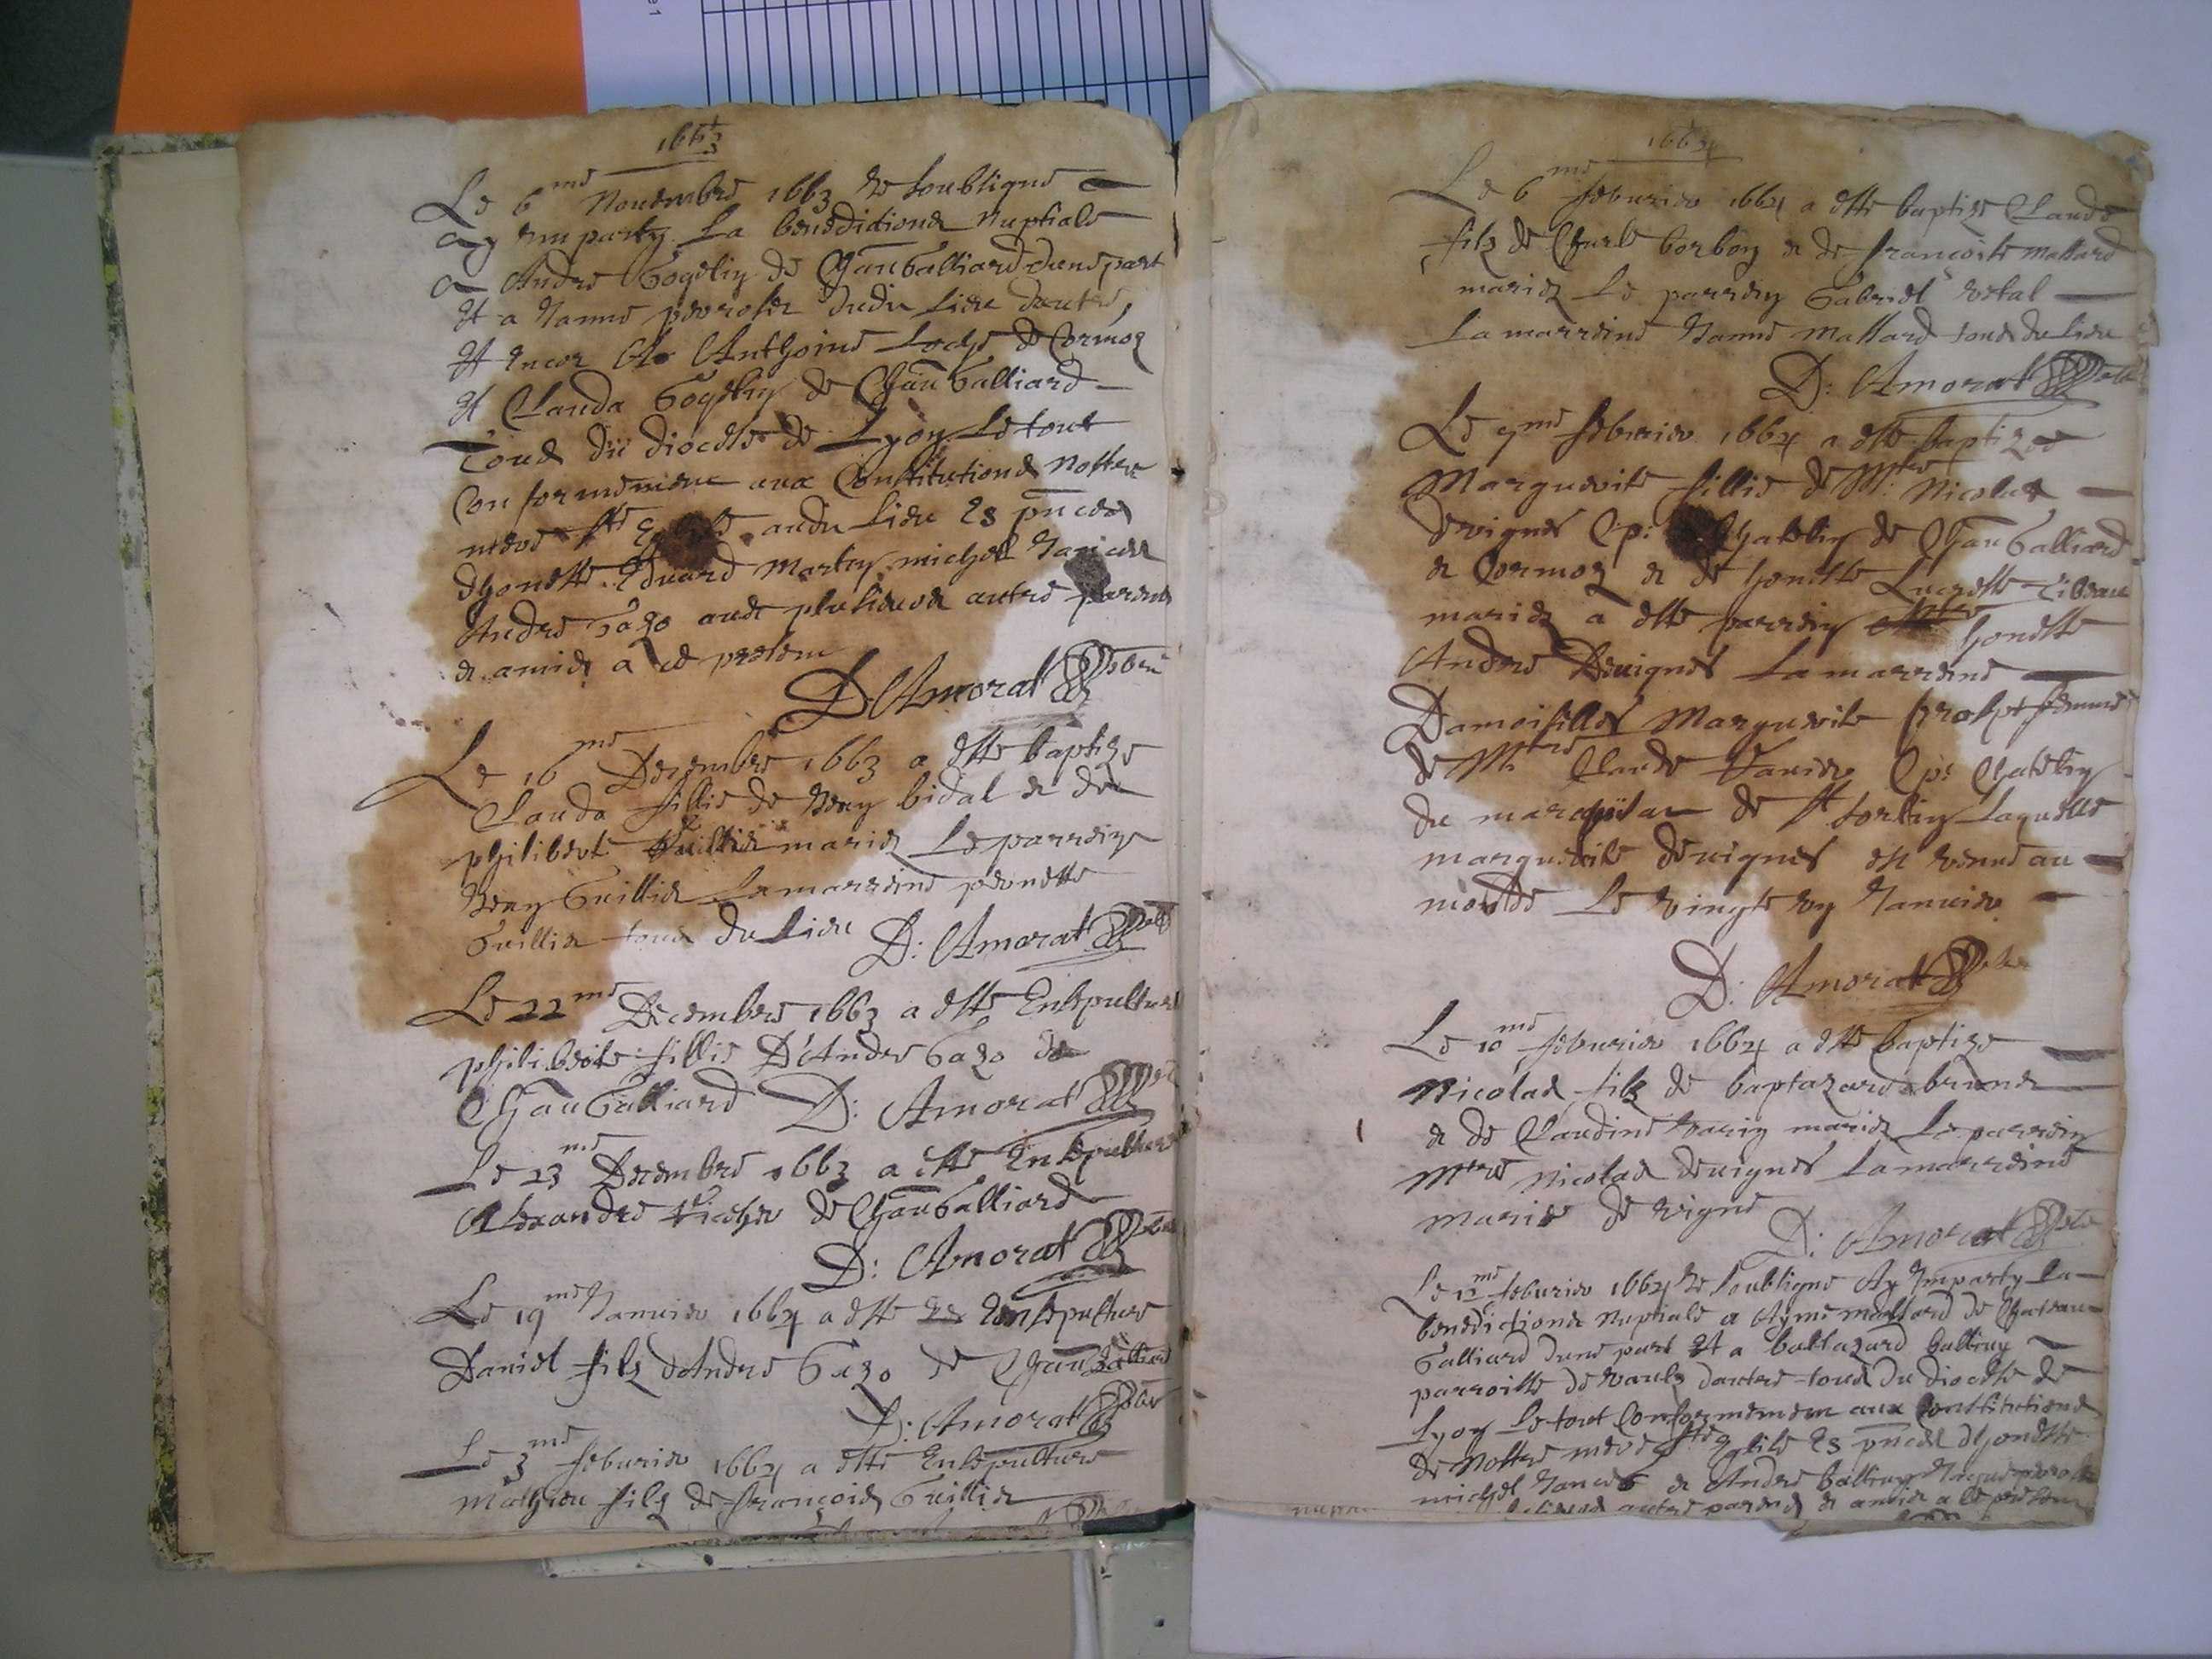 1663
Le 6me Novembre 1663 Je soubsigne
ay Imparty la benedictione Nuptiale
a Andre Gogelin de Chaugalliard dune part
Et a Janne perroset dudit lieu dautre,
Et Encor A Anthoine de Cormoz
Et Clauda Gogelin de Chaugalliard
Tous du diocese de Lyon le tout
Conformement aux Constitutions Nostre
mere ste audit lieu Es pnces
dhoneste Eduard Martin michel Janices
Andre Gazo auec plusieurs autre parens
& amis a ce presens
D. Amorat
Le 16me Decembre 1663 a este baptize
Clauda fillie de Beny bidal & de
philiberte Guillis maries Le parrein
Beny Guillis La marreine pernette
Guillis tous du lieu D: Amorat
Le 22me Decembre 1663 a este Ensepulture
philiberte fillie D'Andre Gazo de
Chaugalliard D: Amorat
Le 23me Decembre 1663 a este Ensepulture
Alexandre de Chaugalliard
D: Amorat
Le 19me Januier 1664 a este Ensepulture
Daniel filz dAndre Gazo de Chaugalliard
D: Amorat
Le 3me feburier 1664 a este Ensepulture
Mathieu filz de francois Guillis
1664
Le 6me feburier 1664 a este baptize Claude
filz de Charle borbon & de francoise Mallard
maries Le parrein Gabriel vetal
La marreine Janne Mallard tous du lieu
D: Amorat
Le 9me feburier 1664 a este baptizee
Marguerite fillie de Mtre Nicolas
devignes Cp: Chatelin de Chaugalliard
& Cormoz & de honeste Lucresse
maries a este parrein honeste
Andre Deuignes La marreine
Damoiselles Marguerite femme
de Mtre Claude Cps Chatelin
du marquisat de st sorlin Laquelle
marguerite deuignes est venue au
monde Le vingte vn Januier
D: Amorat
Le 10me feburier 1664 a este baptize
Nicolas filz de baptazard brune
& de Claudine varin maries Le parrein
Mtre Nicolas deuignes La marreine
Marie de vigne D: Amorat
Le 12me feburier 1664 Je soubsigne Ay Imparty la
benedictione Nuptiale a Ayme Mallard de Chateau
Galliard dune part Et a baltazard balliny
parroisse de vaulz dautre tous du diocese de
Lyon Le tout Conformement aux Constitutions
de Nostre mere ste glise Es pnces dhoneste
michel Janices & Andre balliny
autre parens & amis a ce presens